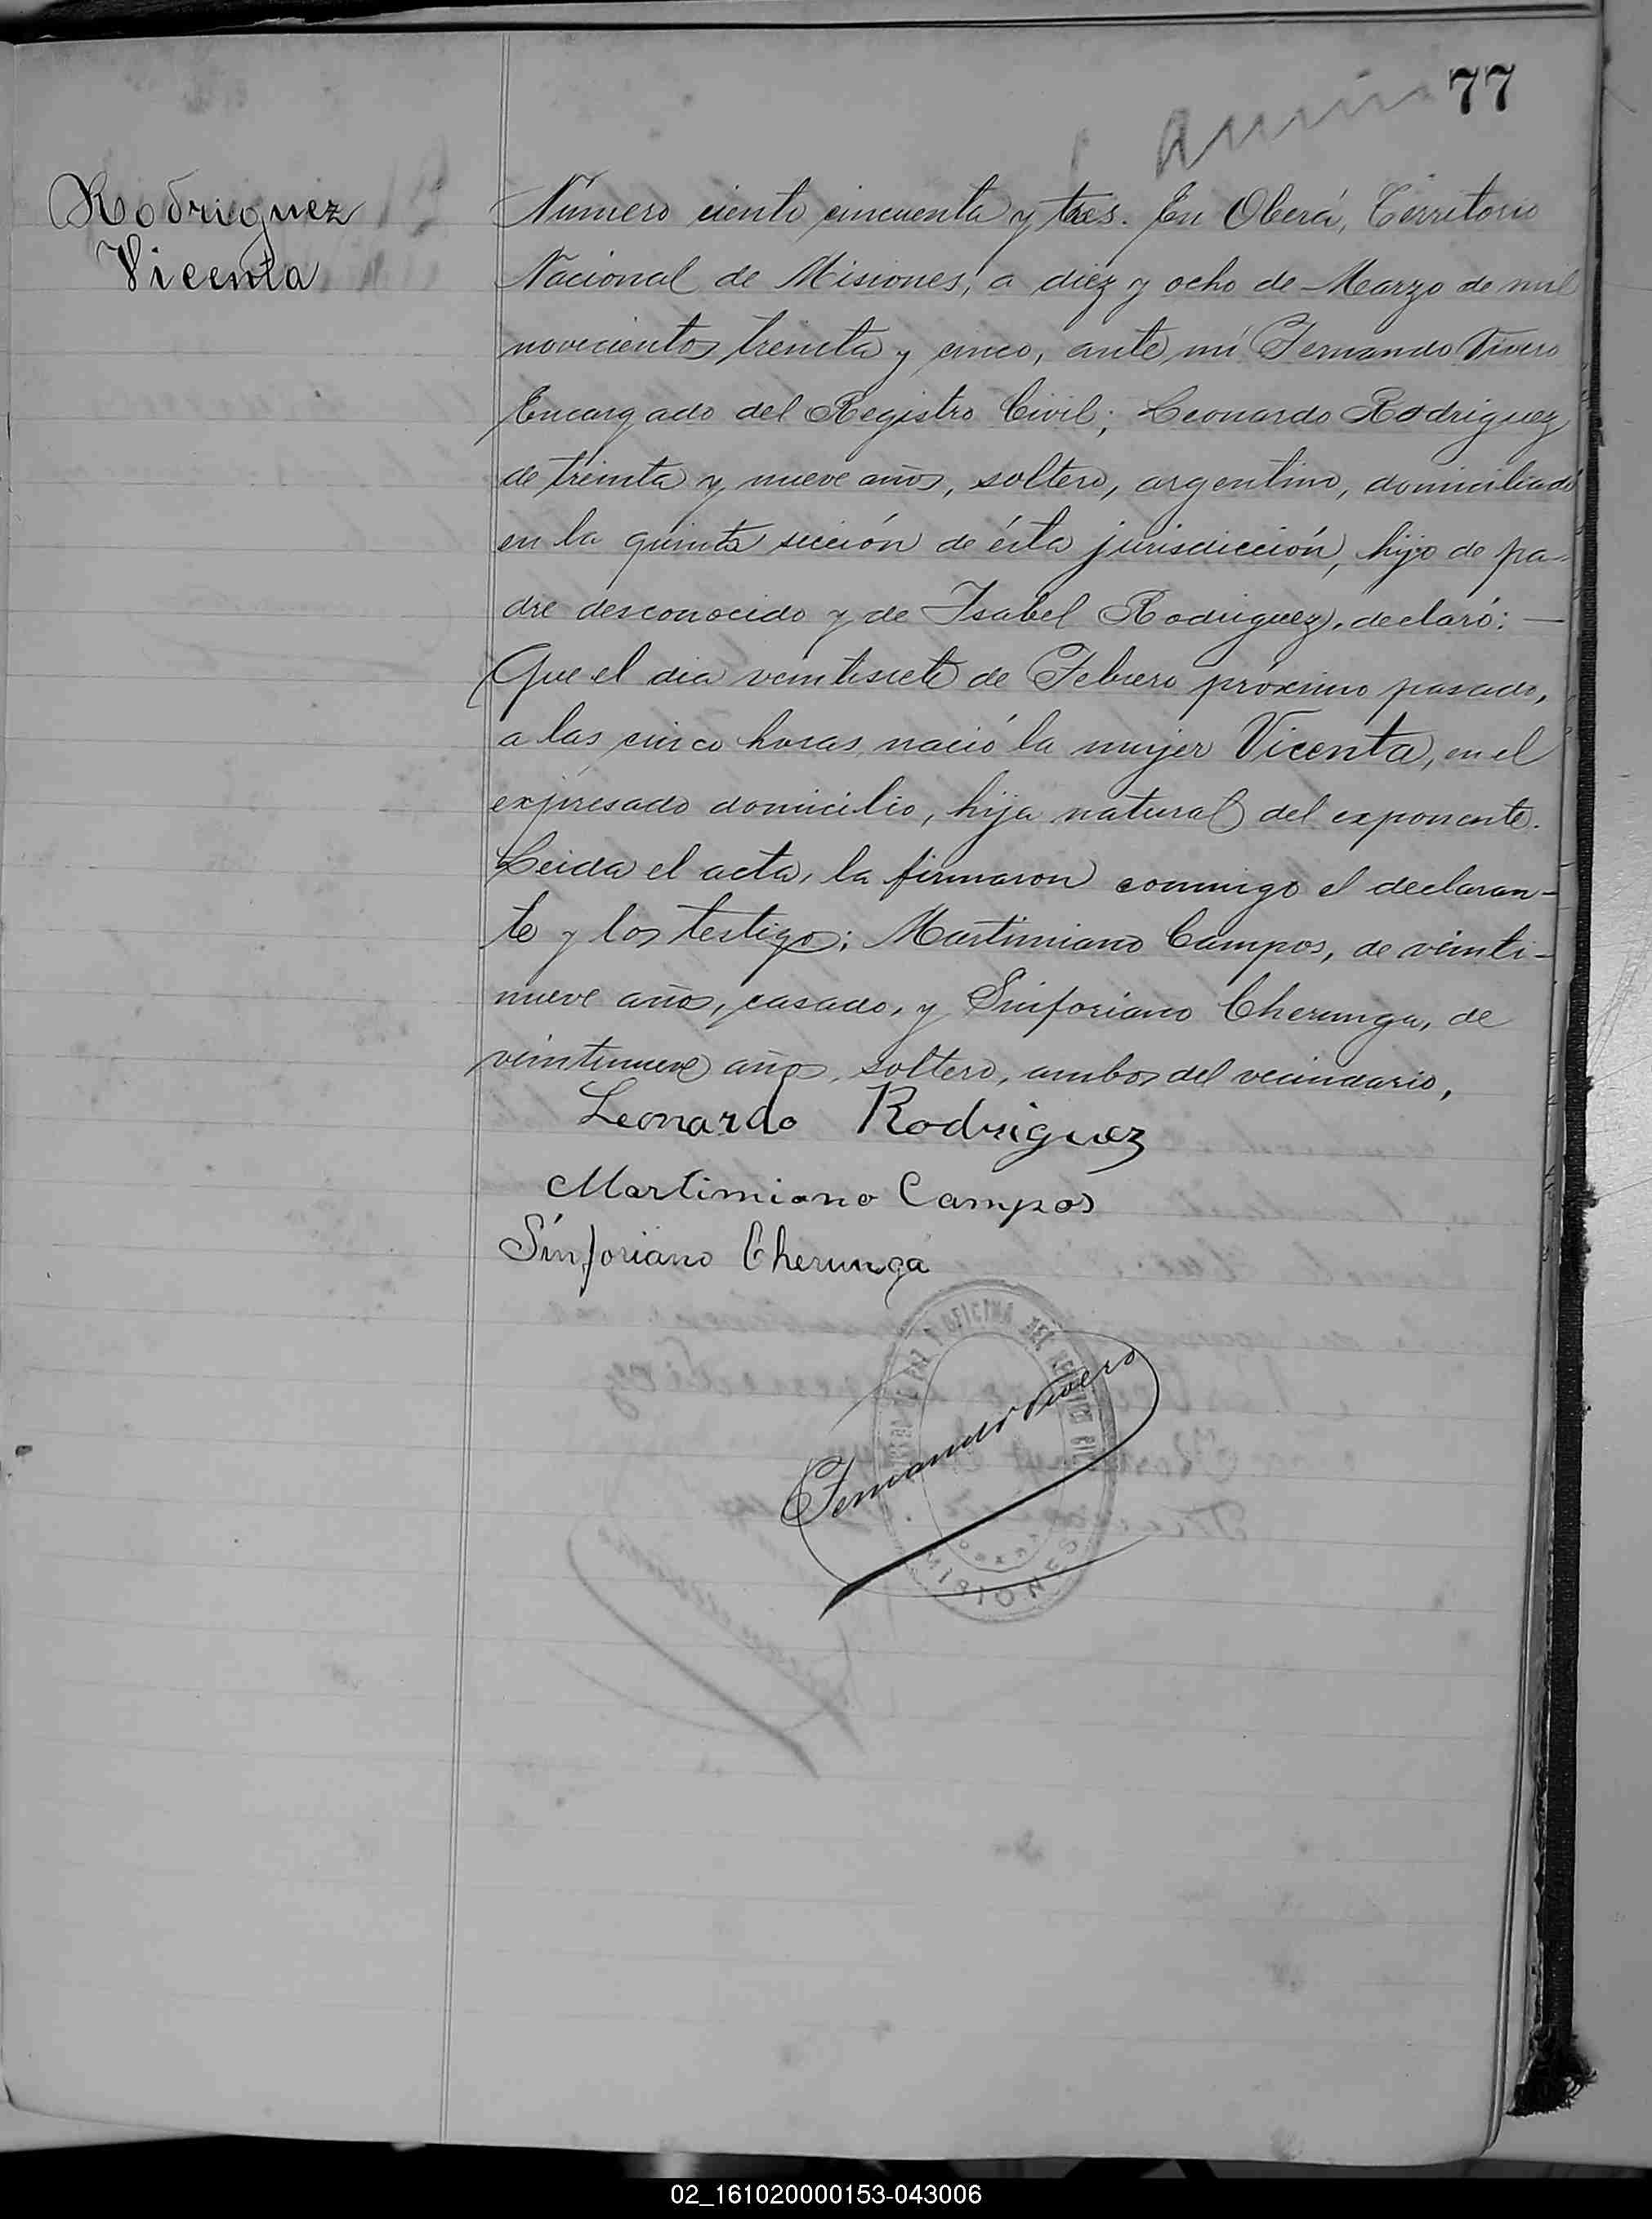 77
Rodriguez
Vicenta
Número ciento cincuenta y tres. En Oberá, Territorio
Nacional de Misiones, a diez y ocho de Marzo de mil
novecientos treinta y cinco, ante mí Fernando Vivero
Encargado del Registro Civil; Leonardo Rodriguez
de treinta y nueve años, soltero, argentino, domiciliado
en la quinta sección de ésta jurisdicción, hijo de pa-
dre desconocido y de Isabel Rodriguez, declaró: —
Que el dia veintisiete de Febrero próximo pasado,
a las cinco horas nació la mujer Vicenta, en el
expresado domicilio, hija natural del exponente.
Leida el acta, la firmaron conmigo el declaran-
te y los testigos: Martimiano Campos, de veinti-
nueve años, casado, y Sinforiano Cherunga, de
veintinueve años, soltero, ambos del vecindario,
Leonardo Rodriguez
Martimiano Campos
Sinforiano Cherunga
Fernando Vivero
DE PAZ Y OFICINA DEL REGISTRO CIVIL
MISIONES
02_161020000153-043006